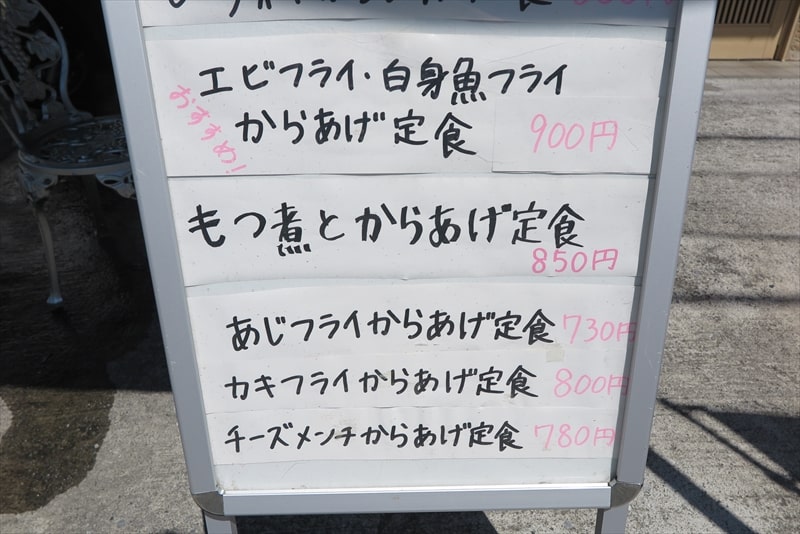 エビフライ・白身魚フライ
おすすめ!
からあげ定食 900円
もつ煮とからあげ定食
850円
あじフライからあげ定食 730円
カキフライからあげ定食 800円
チーズメンチからあげ定食 780円